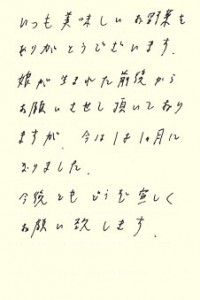 いつも美味しいお野菜を
ありがとうございます。
娘が生まれた前後から
お願いさせて頂いており
ますが、今は1才1ヶ月に
なりました。
今後ともどうぞ宜しく
お願い致します。